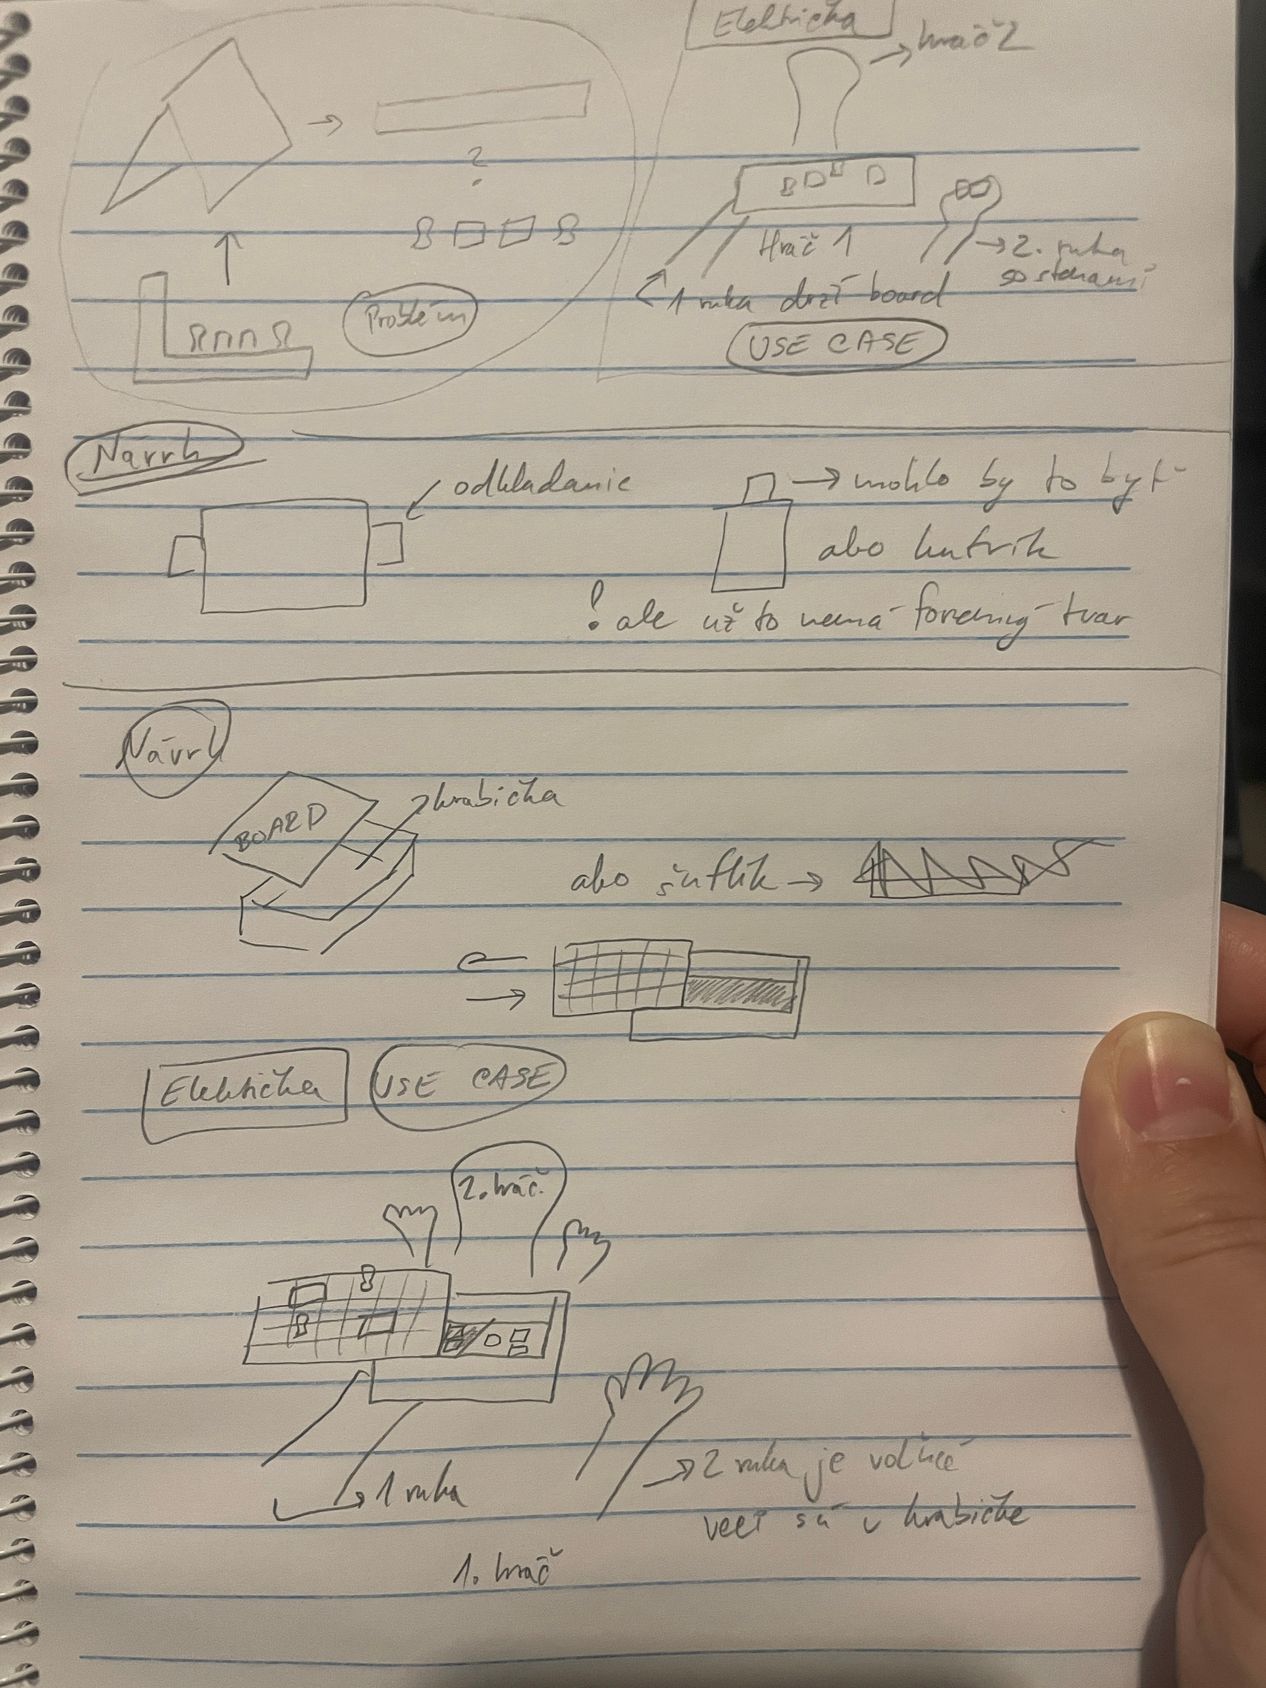 Električka
hráč 2
?
Hráč 1
→ 2. ruka
so stenami
1 ruka drží board
Problém
USE CASE
Návrh
odkladanie
→ mohlo by to byť
abo kufrík
! ale už to nemá foremný tvar
Návrh
BOARD
krabička
abo šuflík →
Električka USE CASE
2. hráč
1 ruka
→ 2 ruka je voľné
veci sú v krabičke
1. hráč